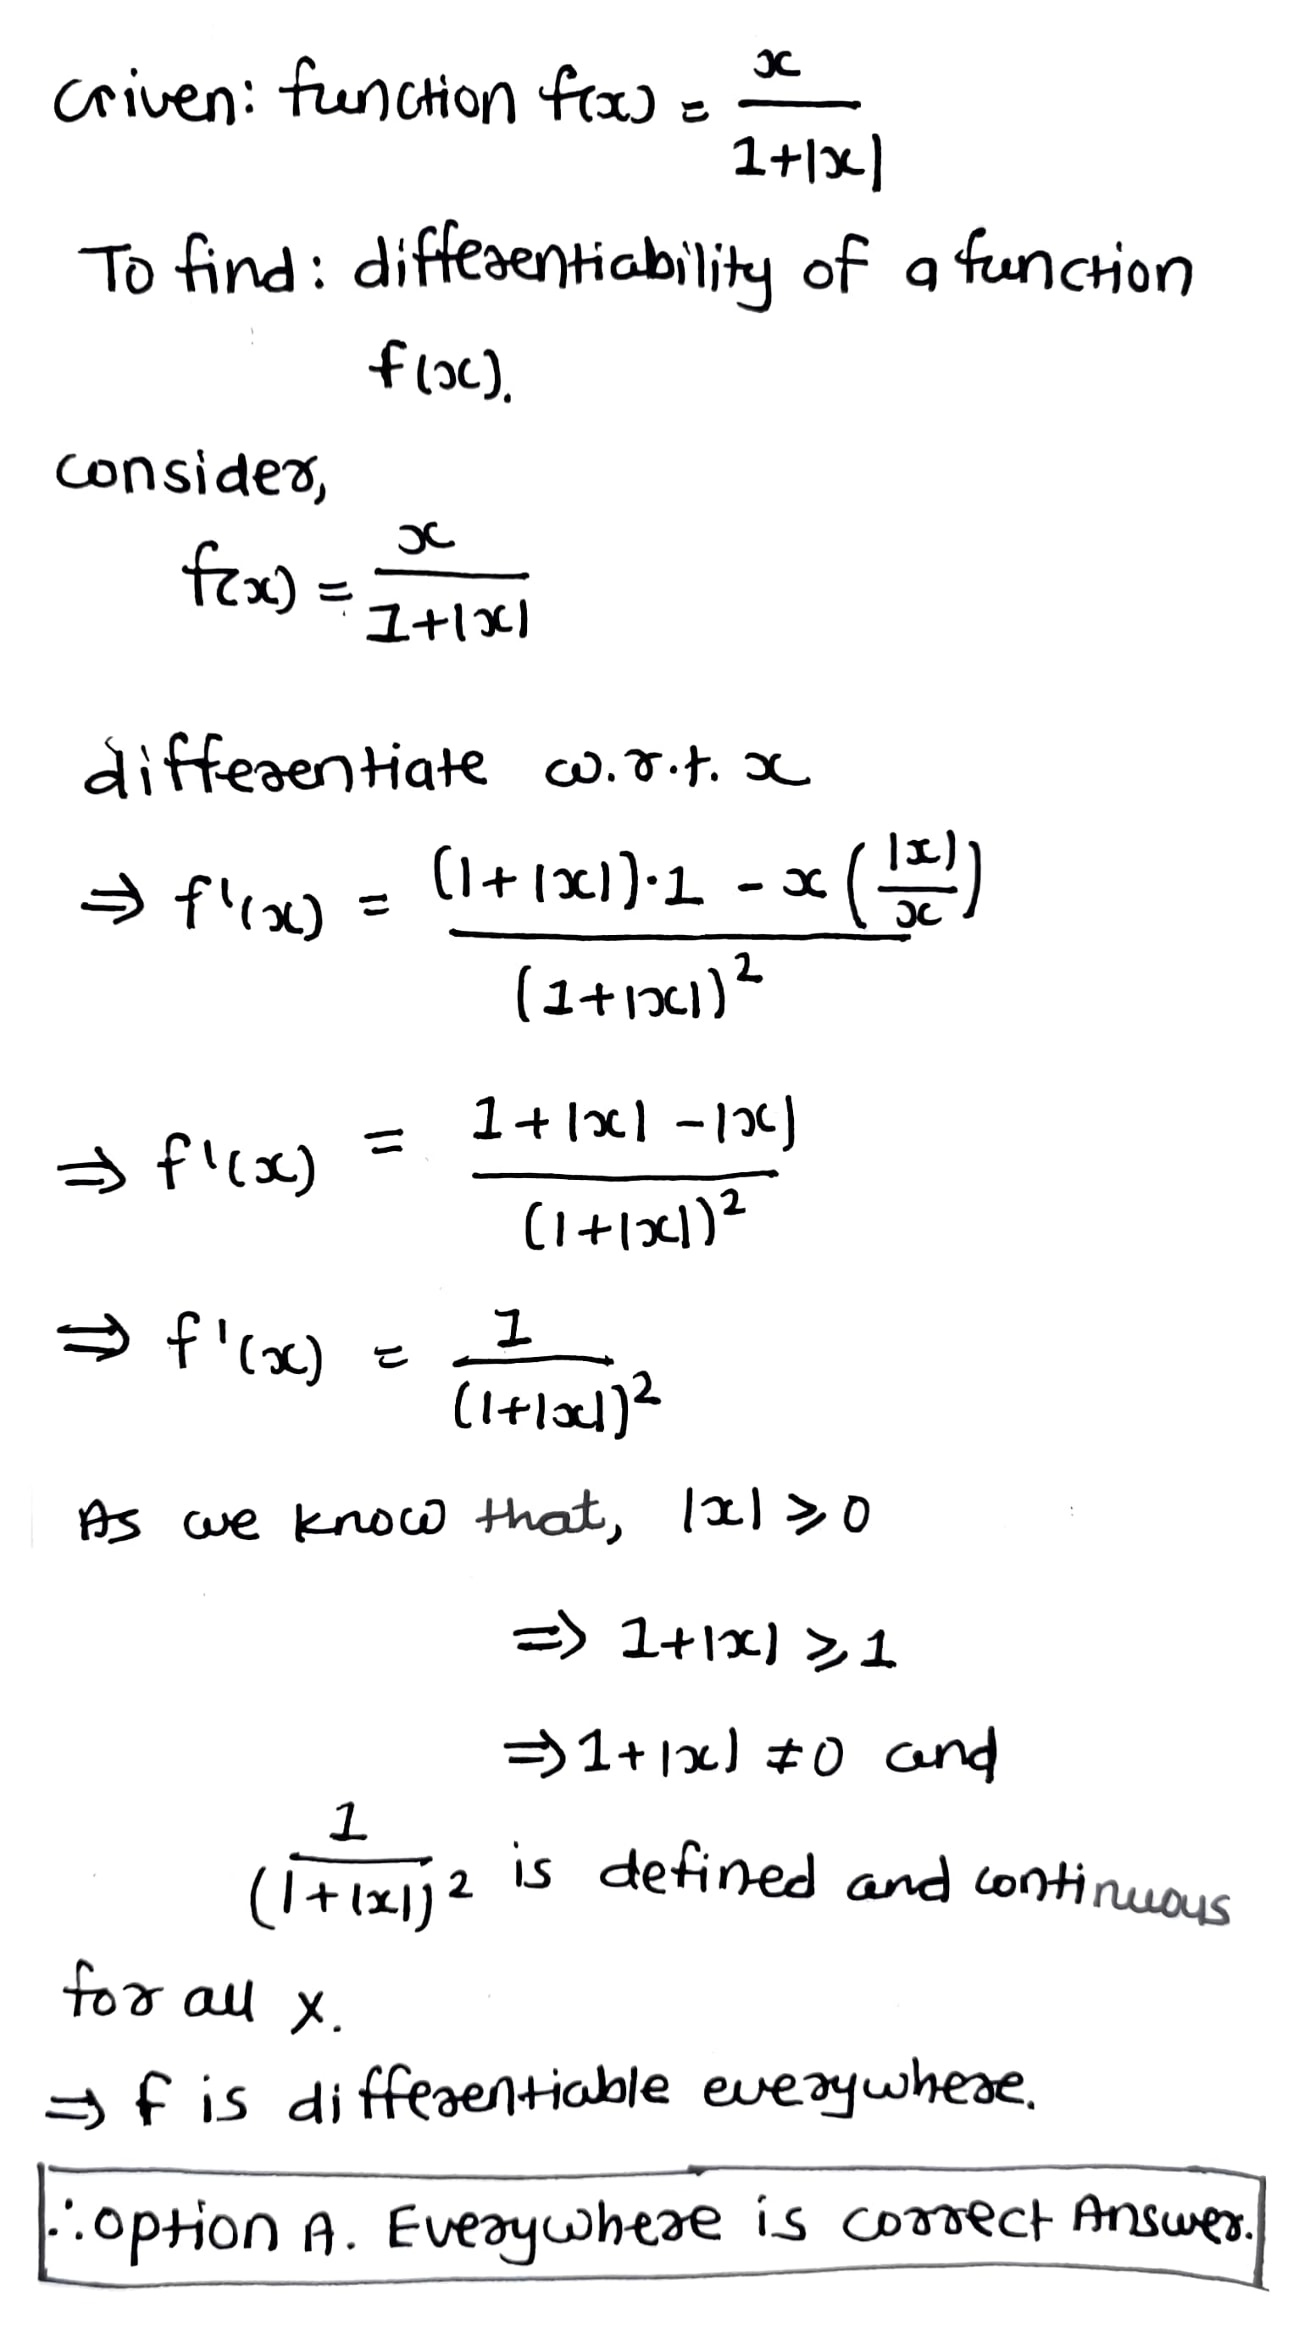 Given: function f(x) = x / 1+|x|
To find: differentiability of a function
f(x).
consider,
f(x) = x / 1+|x|
differentiate w.r.t. x
⇒ f'(x) = (1+|x|)·1 - x(|x|/x) / (1+|x|)²
⇒ f'(x) = 1+|x| -|x| / (1+|x|)²
⇒ f'(x) = 1 / (1+|x|)²
As we know that, |x| ⩾ 0
⇒ 1+|x| ⩾ 1
⇒ 1+|x| ≠ 0 and
1 / (1+|x|)² is defined and continuous
for all x.
⇒ f is differentiable everywhere.
∴ option A. Everywhere is correct Answer.